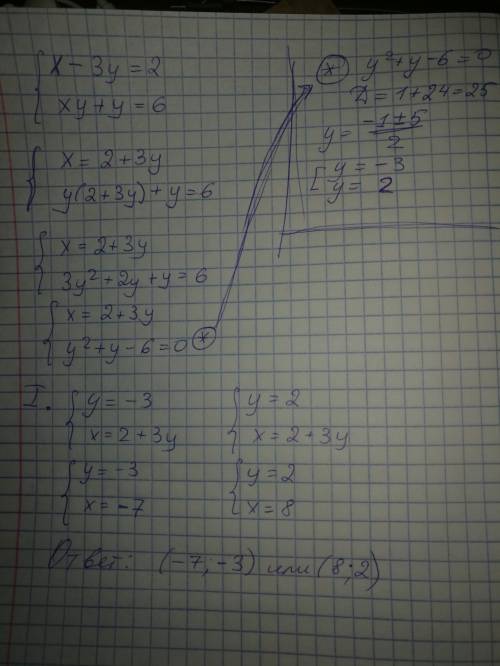 x - 3y = 2
xy + y = 6
x = 2 + 3y
y(2 + 3y) + y = 6
x = 2 + 3y
3y² + 2y + y = 6
x = 2 + 3y
y² + y - 6 = 0 (*)
(*) y² + y - 6 = 0
D = 1 + 24 = 25
y = (-1 ± 5)/2
[ y = -3
y = 2
I. { y = -3
x = 2 + 3y
{ y = -3
x = -7
{ y = 2
x = 2 + 3y
{ y = 2
x = 8
Ответ: (-7; -3) или (8; 2)